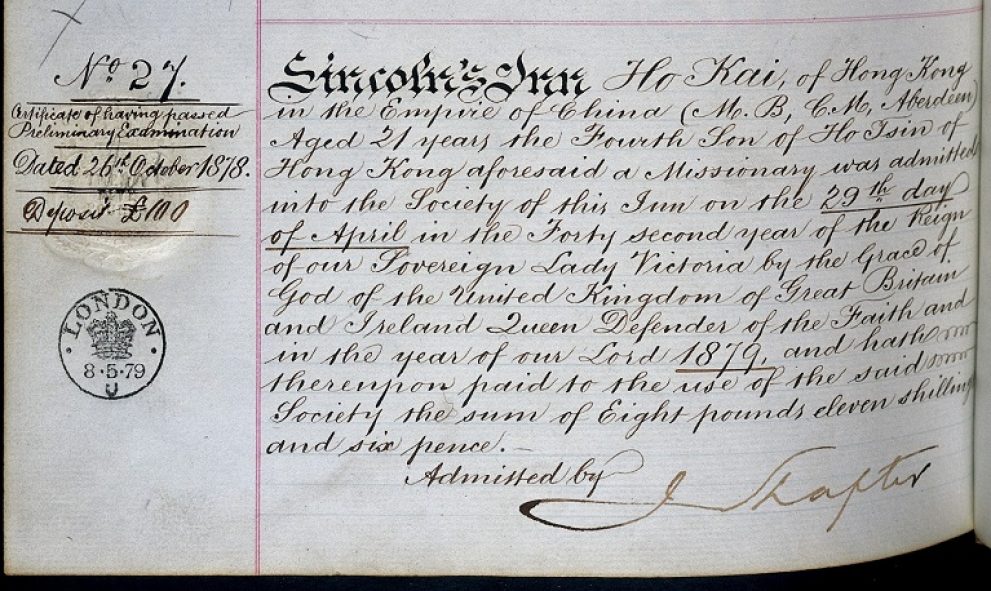 No 27.
Certificate of having passed
Preliminary Examination
Dated 26th October 1878.
Deposit £100
LONDON
8·5·79
U
Lincoln's Inn Ho Kai, of Hong Kong
in the Empire of China (M.B, C.M, Aberdeen)
Aged 21 years the Fourth Son of Ho Tsin of
Hong Kong aforesaid a Missionary was admitted
into the Society of this Inn on the 29th day
of April in the Forty second year of the Reign
of our Sovereign Lady Victoria by the Grace of
God of the United Kingdom of Great Britain
and Ireland Queen Defender of the Faith and
in the year of our Lord 1879, and hath
thereupon paid to the use of the said
Society the sum of Eight pounds eleven shilling
and six pence.-
Admitted by J Shapter